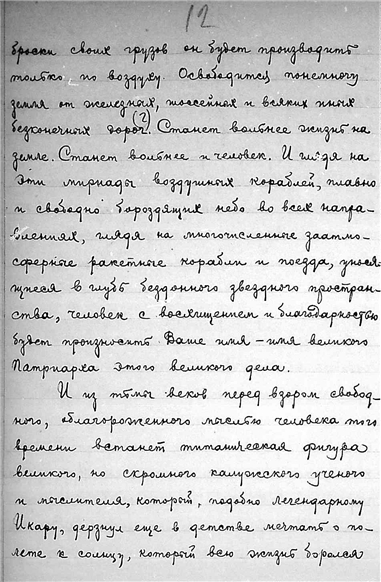 12
броски своих грузов он будет производить
только по воздуху. Освободится понемногу
земля от железных, шоссейных и всяких иных
безконечных дорог. Станет вольнее жизнь на
земле. Станет вольнее и человек. И глядя на
эти мириады воздушных кораблей, плавно
и свободно бороздящих небо во всех напра-
влениях, глядя на многочисленные заатмо-
сферные ракетные корабли и поезда, унося-
щиеся в глубь бездонного звездного простран-
ства, человек с восхищением и благодарностью
будет произносить Ваше имя – имя великого
Патриарха этого великого дела.
И из тьмы веков перед взором свобод-
ного, облагороженного мыслью человека того
времени встанет титаническая фигура
великого, но скромного калужского ученого
и мыслителя, который, подобно легендарному
Икару, дерзнул еще в детстве мечтать о по-
лете к солнцу, который всю жизнь боролся